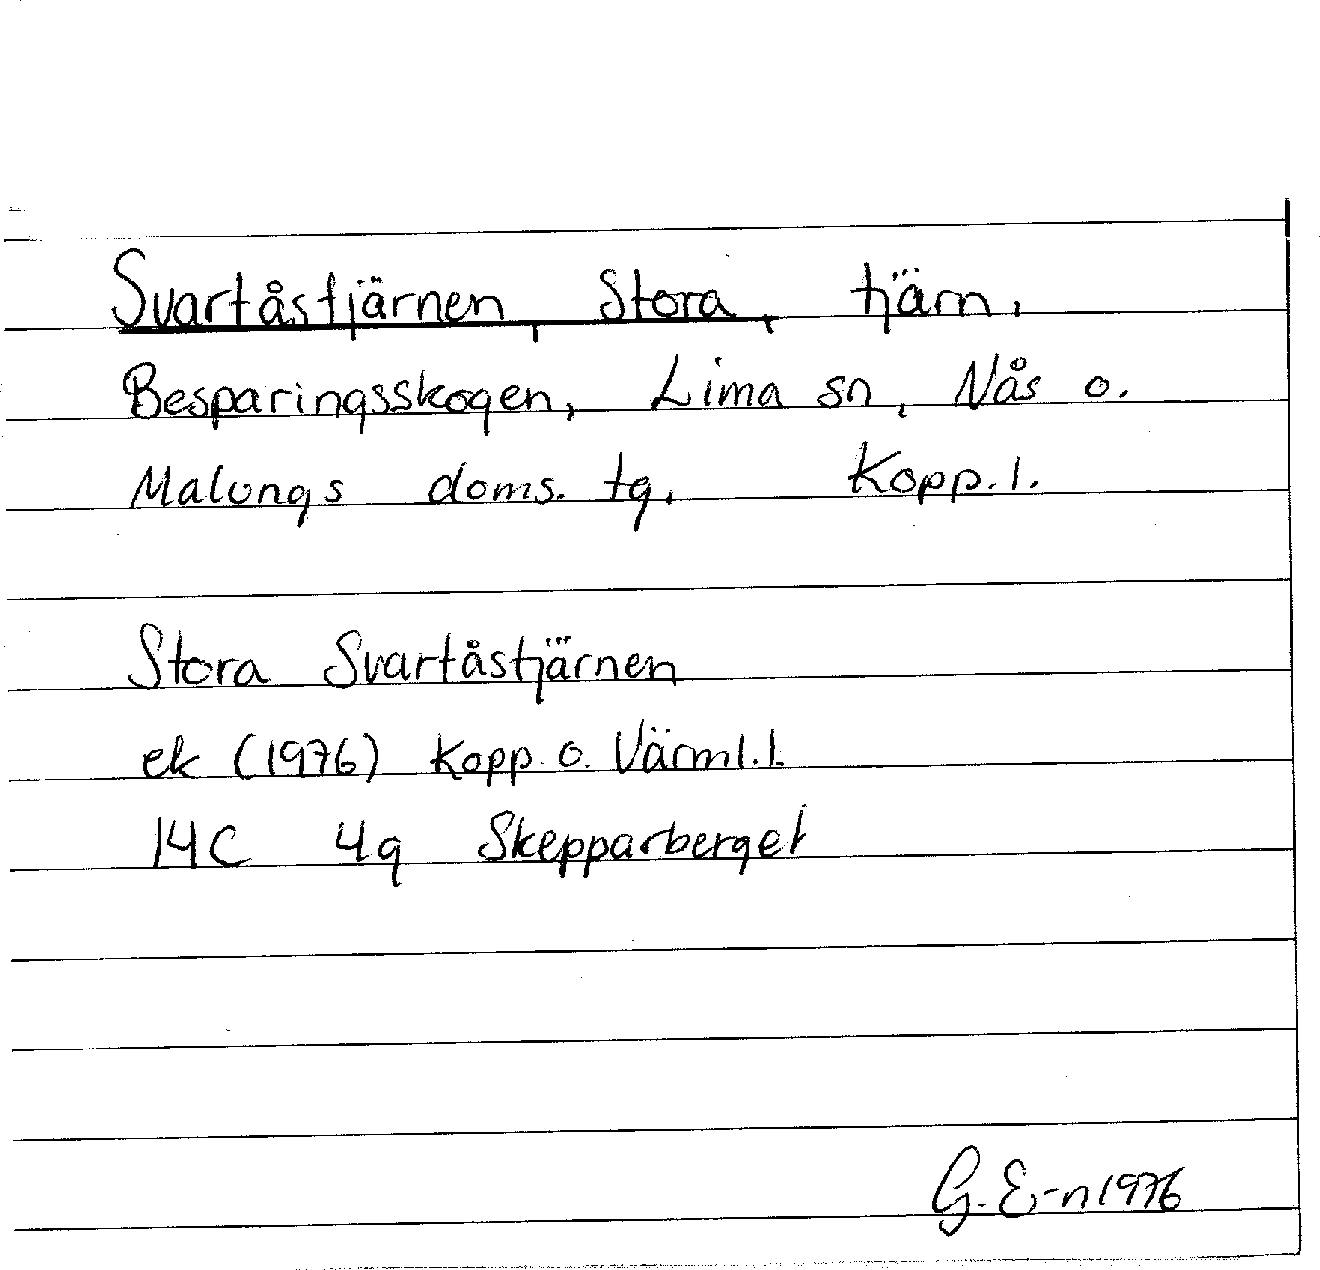 Svartåstjärnen, Stora, tjärn,
Besparingsskogen, Lima sn, Nås o.
Malungs doms. tg. Kopp. l.
Stora Svartåstjärnen
ek (1976) Kopp. o. Värml. l.
14C 4g Skepparberget
G. E-n 1976